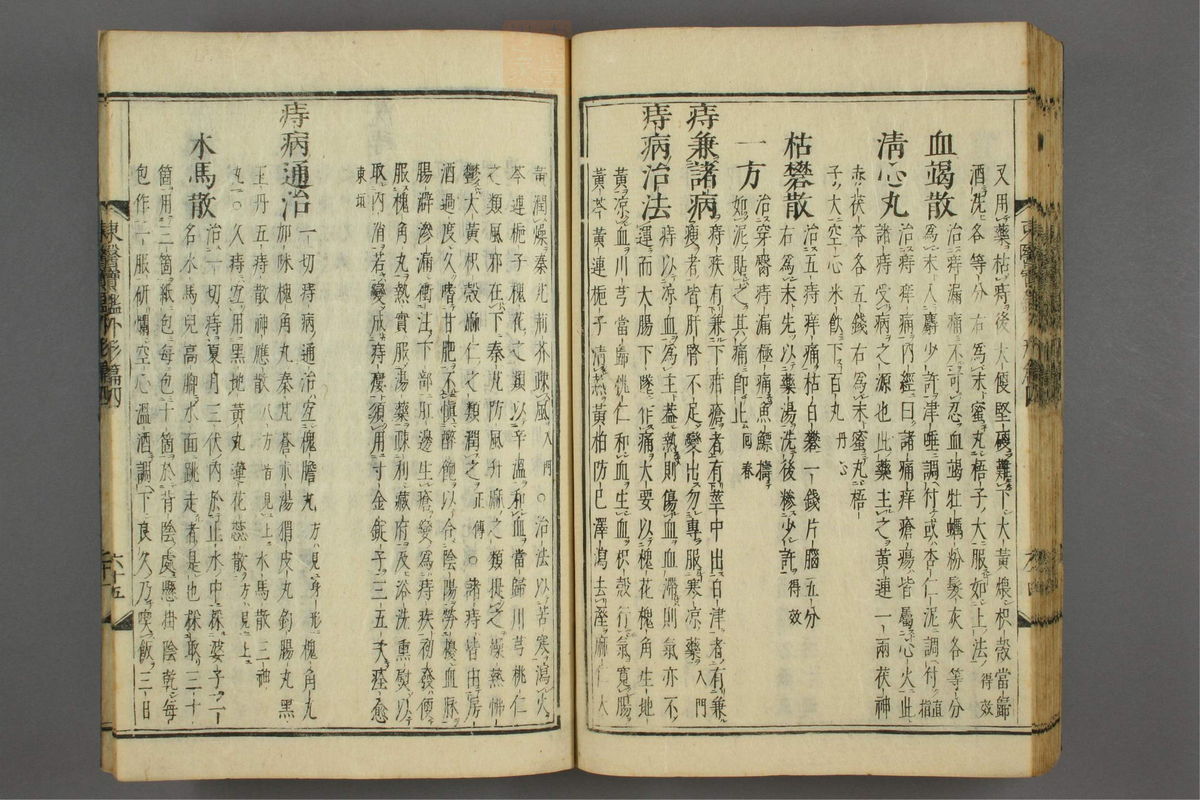 又用藥枯痔後大便堅硬難下大黃煨枳殼當歸
酒洗各等分右爲末蜜丸梧子大服如上法得效
血竭散治痔漏痛不可忍血竭牡蠣粉髮灰各等分
爲末入麝少許津唾調付或杏仁泥調付直指
淸心丸治痔痒痛內經曰諸痛痒瘡瘍皆屬心火此
諸痔受病之源也此藥主之黃連一兩茯神
赤茯苓各五錢右爲末蜜丸梧
子大空心米飮下百丸丹心
枯礬散治五痔痒痛枯白礬一錢片腦五分
右爲末先以藥湯洗後糝少許得效
一方治穿臀痔漏極痛魚鰾擣
如泥貼之其痛卽止回春
痔兼諸病痔疾有兼下疳瘡者有莖中出白津者有兼
瘦者皆肝腎不足變出勿專服寒凉藥入門
痔病治法痔以凉血爲主盖熱則傷血血滯則氣亦不
運而大腸下墜作痛大要以槐花槐角生地
黃凉血川芎當歸桃仁和血生血枳殼行氣寬腸
黃芩黃連梔子淸熱黃柏防己澤瀉去濕麻仁大
黃潤燥秦艽荊芥踈風入門○治法以苦寒瀉火
芩連梔子槐花之類以辛溫和血當歸川芎桃仁
之類風邪在下秦艽防風升麻之類提之燥熱怫
鬱大黃枳殼麻仁之類潤之正傳○諸痔皆由房
酒過度久嗜甘肥不愼醉飽以合陰陽勞擾血脉
腸澼滲漏衝注下部肛邊生瘡變爲痔疾初發便
服槐角丸熱實服湯藥踈利藏府反浴洗熏熨以
取內消若變成痔瘻須用寸金錠子三五次痊愈
東垣
痔病通治一切痔病通治宜槐膽丸方見身形槐角丸
加味槐角丸秦艽蒼朮湯猬皮丸釣腸丸黑
玉丹五痔散神應散八方皆見上水馬散三神
丸一○久痔宜用黑地黃丸蓮花蕊散方見上
水馬散治一切痔夏月三伏內於止水中採婆子一
名水馬兒高脚水面跳走者是也採取三十
箇用三箇紙包每包十箇於背陰處懸掛陰乾每
包作一服研爛空心溫酒調下良久乃喫飯三日
東醫寶鑑外形篇四
六十五